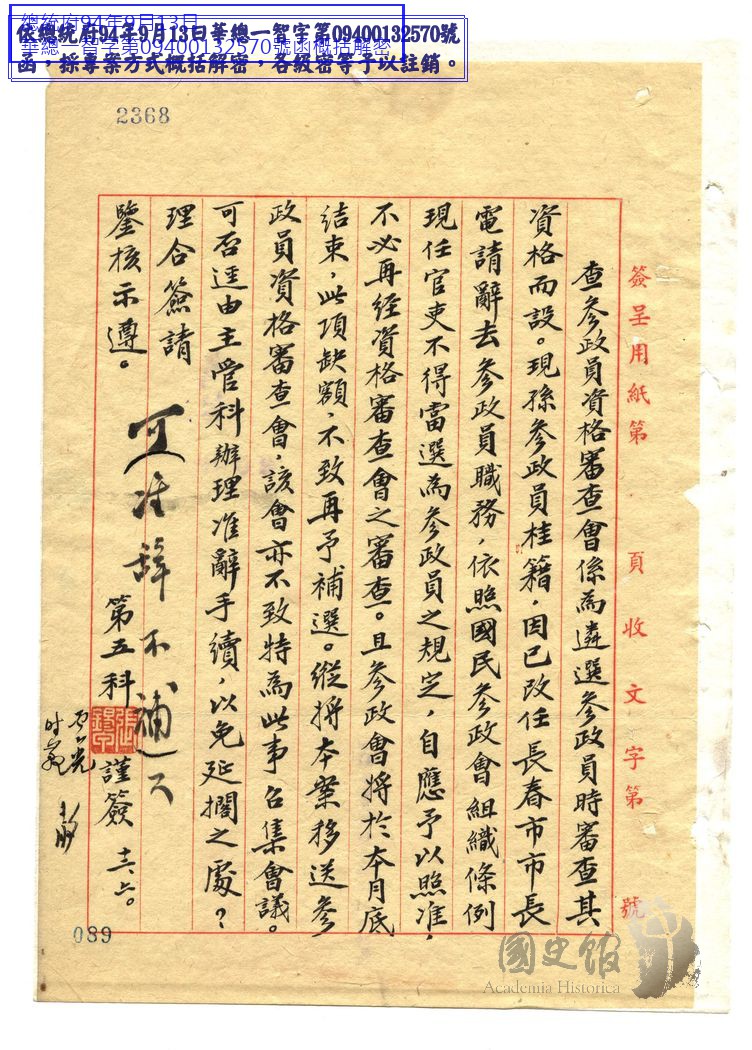 總統府94年9月13日
華總一智字第09400132570號函概括解密
依總統府94年9月13日華總一智字第09400132570號
函，採專案方式概括解密，各級密等予以註銷。
2368
簽呈用紙第 頁收文字第 號
查參政員資格審查會係為遴選參政員時審查其
資格而設。現孫參政員桂籍，因已改任長春市市長
電請辭去參政員職務，依照國民參政會組織條例
現任官吏不得當選為參政員之規定，自應予以照准，
不必再經資格審查會之審查。且參政會將於本月底
結束，此項缺額，不致再予補選。縱將本案移送參
政員資格審查會，該會亦不致特為此事召集會議。
可否逕由主管科辦理准辭手續，以免延擱之處？
理合簽請
鑒核示遵。
可准辭不補
第五科
謹簽
089
國史館
Academia Historica